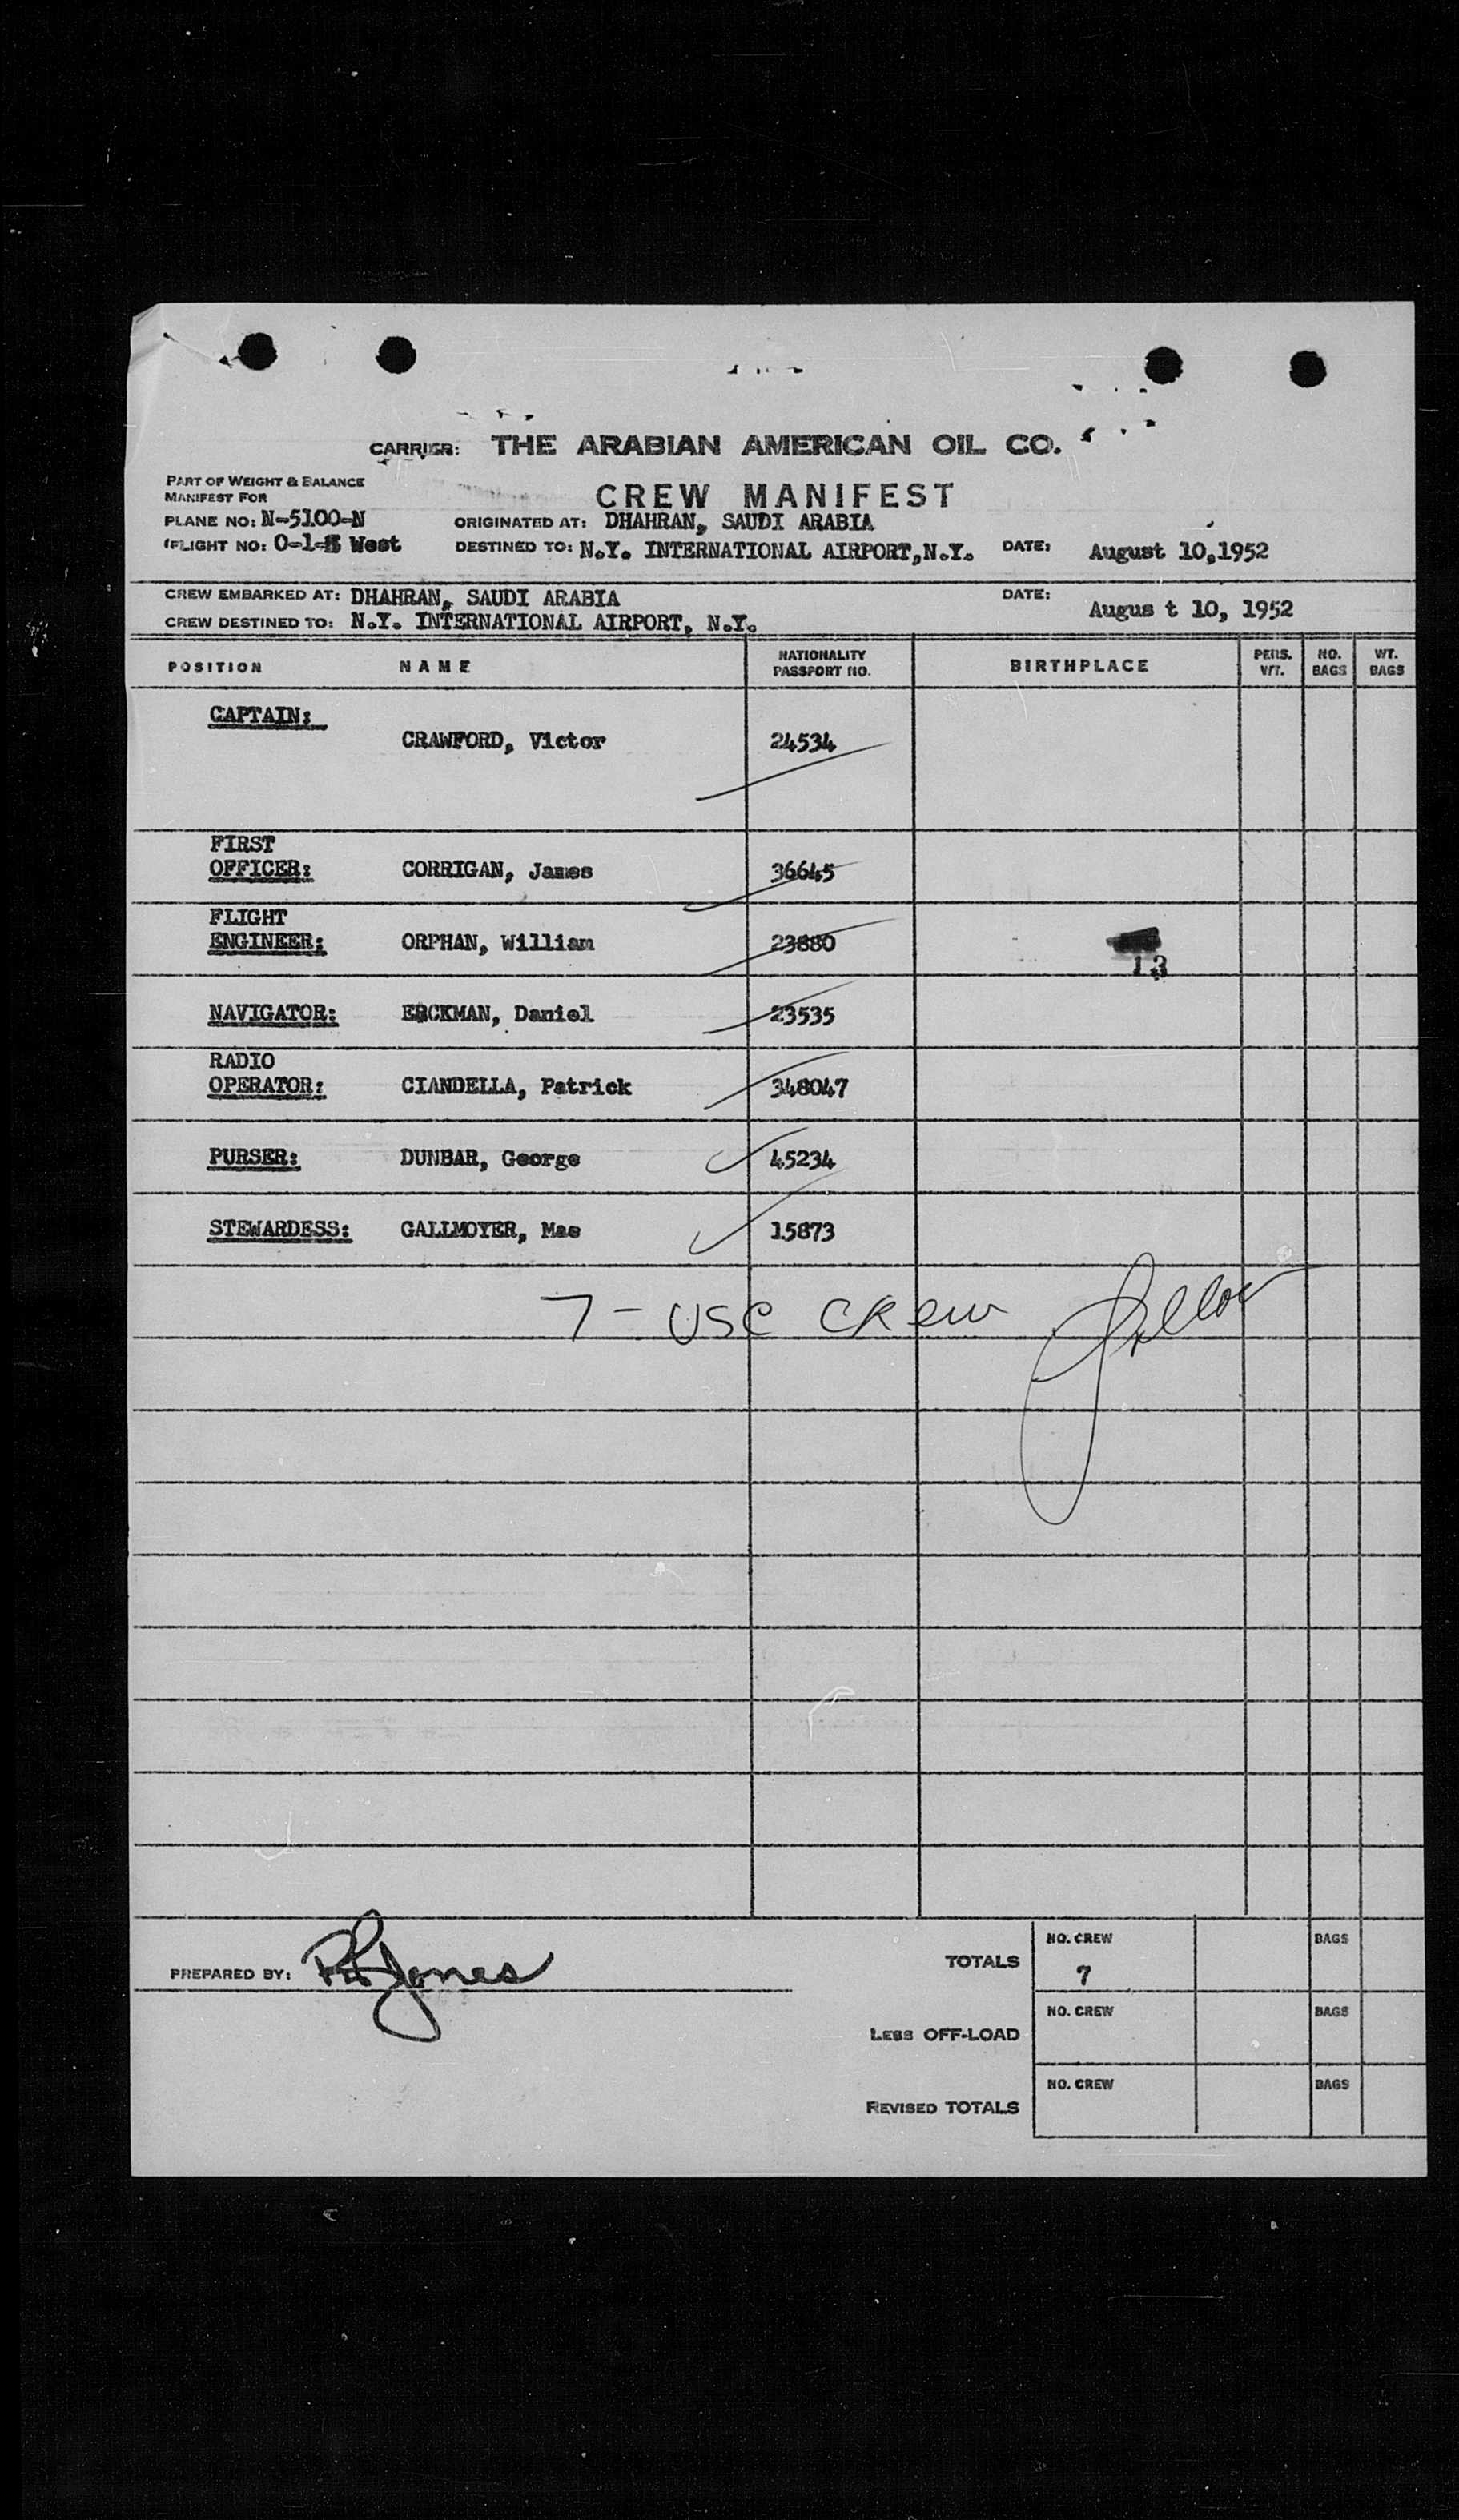 CARRIER: THE ARABIAN AMERICAN OIL CO.
PART OF WEIGHT & BALANCE
MANIFEST FOR
CREW MANIFEST
PLANE NO: N-5100-N ORIGINATED AT: DHAHRAN, SAUDI ARABIA
FLIGHT NO: West DESTINED TO: N.Y. INTERNATIONAL AIRPORT,N.Y. DATE: August 10,1952
CREW EMBARKED AT: DHAHRAN, SAUDI ARABIA DATE: Augus t 10, 1952
CREW DESTINED TO: N.Y. INTERNATIONAL AIRPORT, N.Y.
POSITION NAME NATIONALITY PASSPORT NO. BIRTHPLACE PERS. WT. NO. BAGS WT. BAGS
CAPTAIN:
CRAWFORD, Victor 24534
FIRST
OFFICER: CORRIGAN, James 36645
FLIGHT
ENGINEER: ORPHAN, William 23880
13
NAVIGATOR: ERCKMAN, Daniel 23535
RADIO
OPERATOR: CIANDELLA, Patrick 348047
PURSER: DUNBAR, George 45234
STEWARDESS: GALLMOYER, Mae 15873
7 - USC CREW
PREPARED BY: Jones
TOTALS NO. CREW 7 BAGS
LESS OFF-LOAD NO. CREW BAGS
REVISED TOTALS NO. CREW BAGS